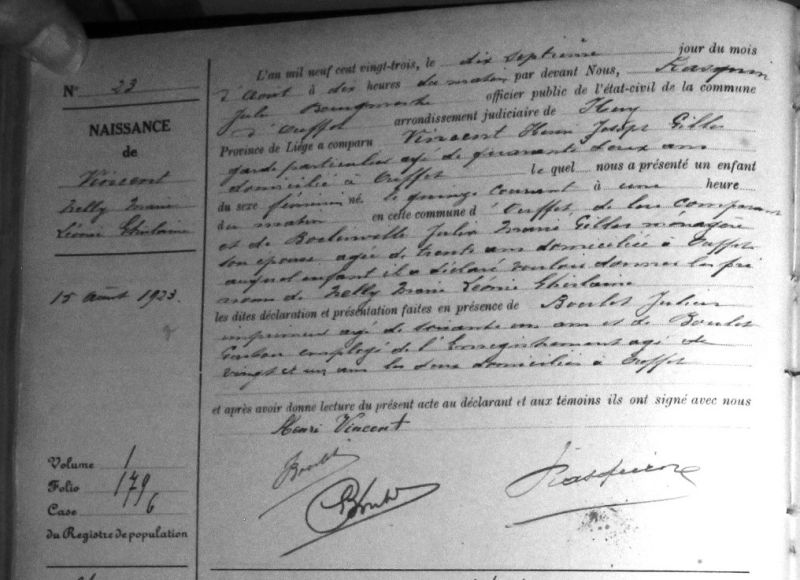 N° 23
NAISSANCE
de
Vincent
Nelly Marie
Léonie Ghislaine
15 août 1923
Volume 1
Folio 179
Case 6
du Registre de population
L'an mil neuf cent vingt-trois, le dix septième jour du mois
d'Août à dix heures du matin par devant Nous,
Jules officier public de l'état-civil de la commune
d'Ouffet arrondissement judiciaire de Huy
Province de Liège a comparu Vincent Henri Joseph Gilles
garde particulier agé de quarante deux ans
domicilié à Ouffet le quel nous a présenté un enfant
du sexe féminin né, le quinze courant à une heure
du matin en cette commune d'Ouffet de lui comparant
et de Julia Marie Gilles ménagère
son épouse agée de trente ans domiciliée à Ouffet
auquel enfant il a déclaré vouloir donner les pré
noms de Nelly Marie Léonie Ghislaine
les dites déclaration et présentation faites en présence de Boulet Julien
agé de soixante un ans et de Boulet
Gaston employé de l'Enregistrement agé de
vingt et un ans les deux domiciliés à Ouffet
et après avoir donné lecture du présent acte au déclarant et aux témoins ils ont signé avec nous
Henri Vincent
Boulet